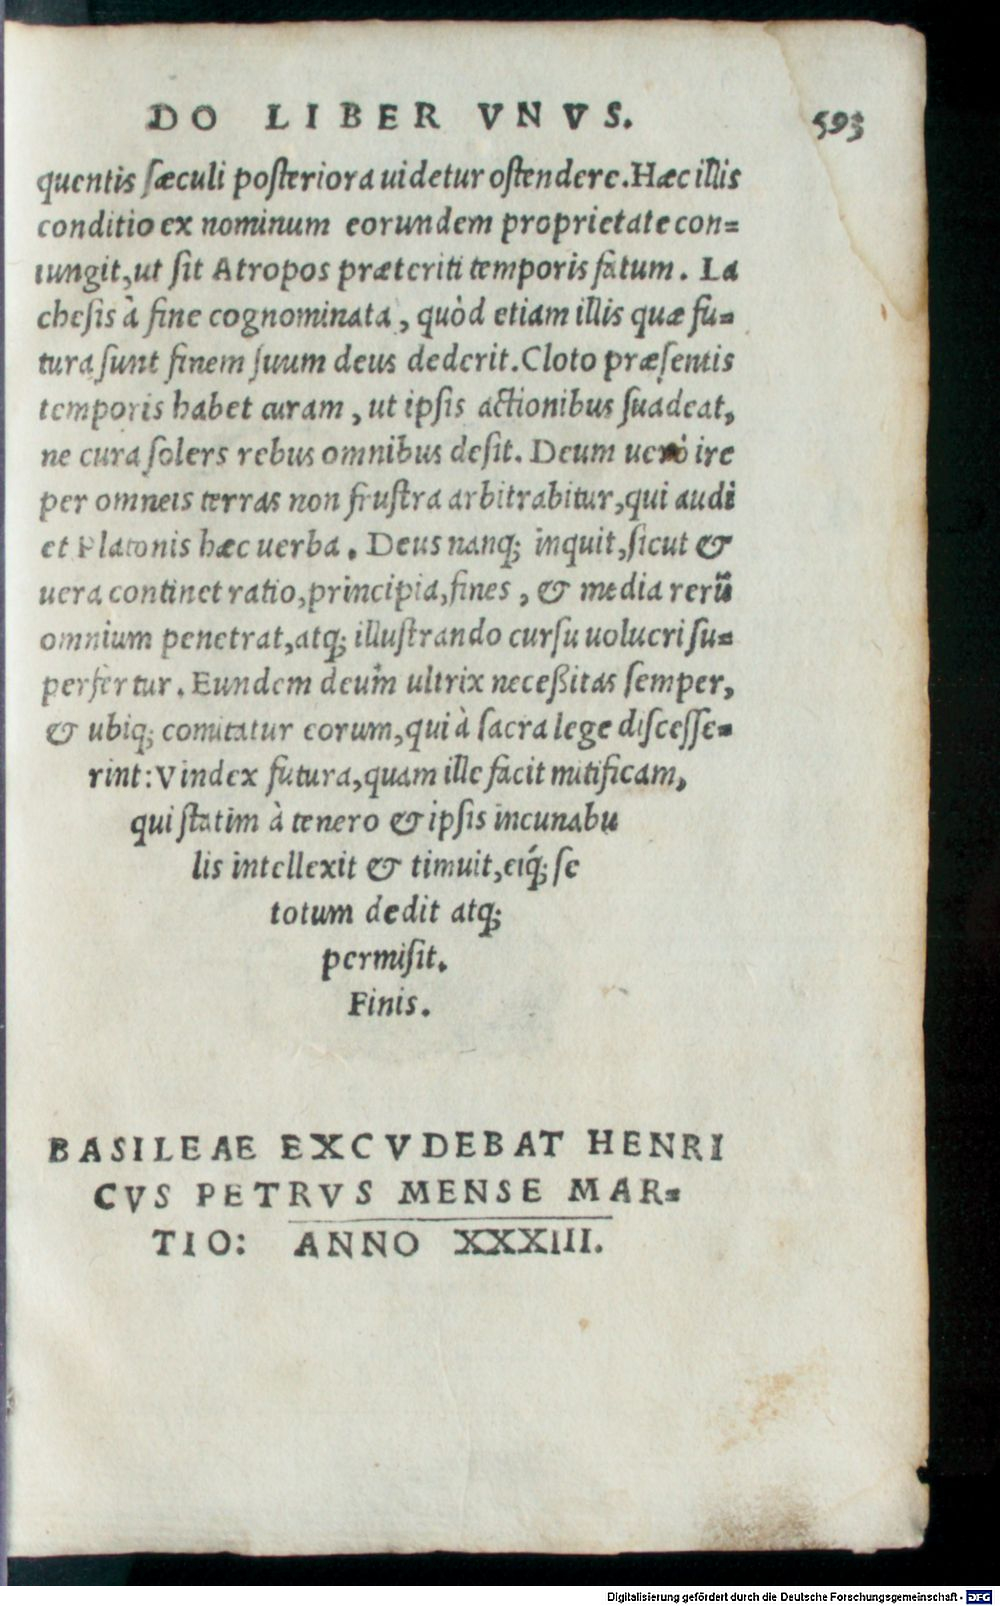 DO LIBER VNVS. 593
quentis ſæculi poſteriora uidetur oſtendere. Hæc illis
conditio ex nominum eorundem proprietate con=
iungit, ut ſit Atropos præteriti temporis fatum. La
cheſis à fine cognominata, quòd etiam illis quæ fu=
tura ſunt finem ſuum deus dederit. Cloto præſentis
temporis habet curam, ut ipſis actionibus ſuadeat,
ne cura ſolers rebus omnibus deſit. Deum uerò ire
per omneis terras non fruſtra arbitrabitur, qui audi
et Platonis hæc uerba. Deus nanq; inquit, ſicut &
uera continet ratio, principia, fines, & media rerū
omnium penetrat, atq; illuſtrando curſu uolucri ſu=
perfertur. Eundem deum ultrix neceßitas ſemper,
& ubiq; comitatur eorum, qui à ſacra lege diſceſſe=
rint: Vindex futura, quam ille facit mitificam,
qui ſtatim à tenero & ipſis incunabu
lis intellexit & timuit, eiq́; ſe
totum dedit atq;
permiſit.
Finis.
BASILEAE EXCVDEBAT HENRI
CVS PETRVS MENSE MAR=
TIO: ANNO XXXIII.
Digitalisierung gefördert durch die Deutsche Forschungsgemeinschaft - DFG